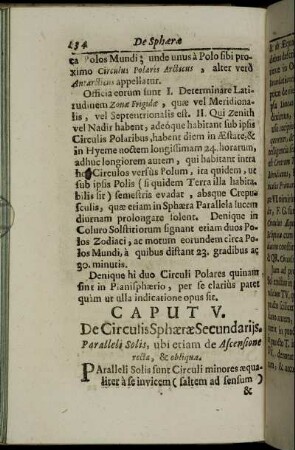 234 De Sphæræ
ca Polos Mundi; unde unus à Polo sibi pro-
ximo Circulus Polaris Arcticus, alter verò
Antarcticus appellatur.
Officia eorum sunt I. Determinare Lati-
tudinem Zonæ Frigidæ, quæ vel Meridiona-
lis, vel Septentrionalis est. II. Qui Zenith
vel Nadir habent, adeòque habitant sub ipsis
Circulis Polaribus, habent diem in Æstate, &
in Hyeme noctem longissimam 24. horarum,
adhuc longiorem autem, qui habitant intra
hos Circulos versùs Polum, ita quidem, ut
sub ipsis Polis (si quidem Terra illa habita-
bilis sit) semestris evadat, absque Crepu-
sculis, quæ etiam in Sphæra Parallela lucem
diurnam prolongare solent. Denique in
Coluro Solstitiorum signant etiam duos Po-
los Zodiaci, ac motum eorundem circa Po-
los Mundi, à quibus distant 23. gradibus ac
30. minutis.
Denique hi duo Circuli Polares quinam
sint in Planisphærio, per se clariùs patet
quàm ut ulla indicatione opus sit.
CAPUT V.
De Circulis Sphæræ Secundarijs.
Paralleli Solis, ubi etiam de Ascensione
recta, & obliqua.
PAralleli Solis sunt Circuli minores æqua-
liter à se invicem (saltem ad sensum)
&